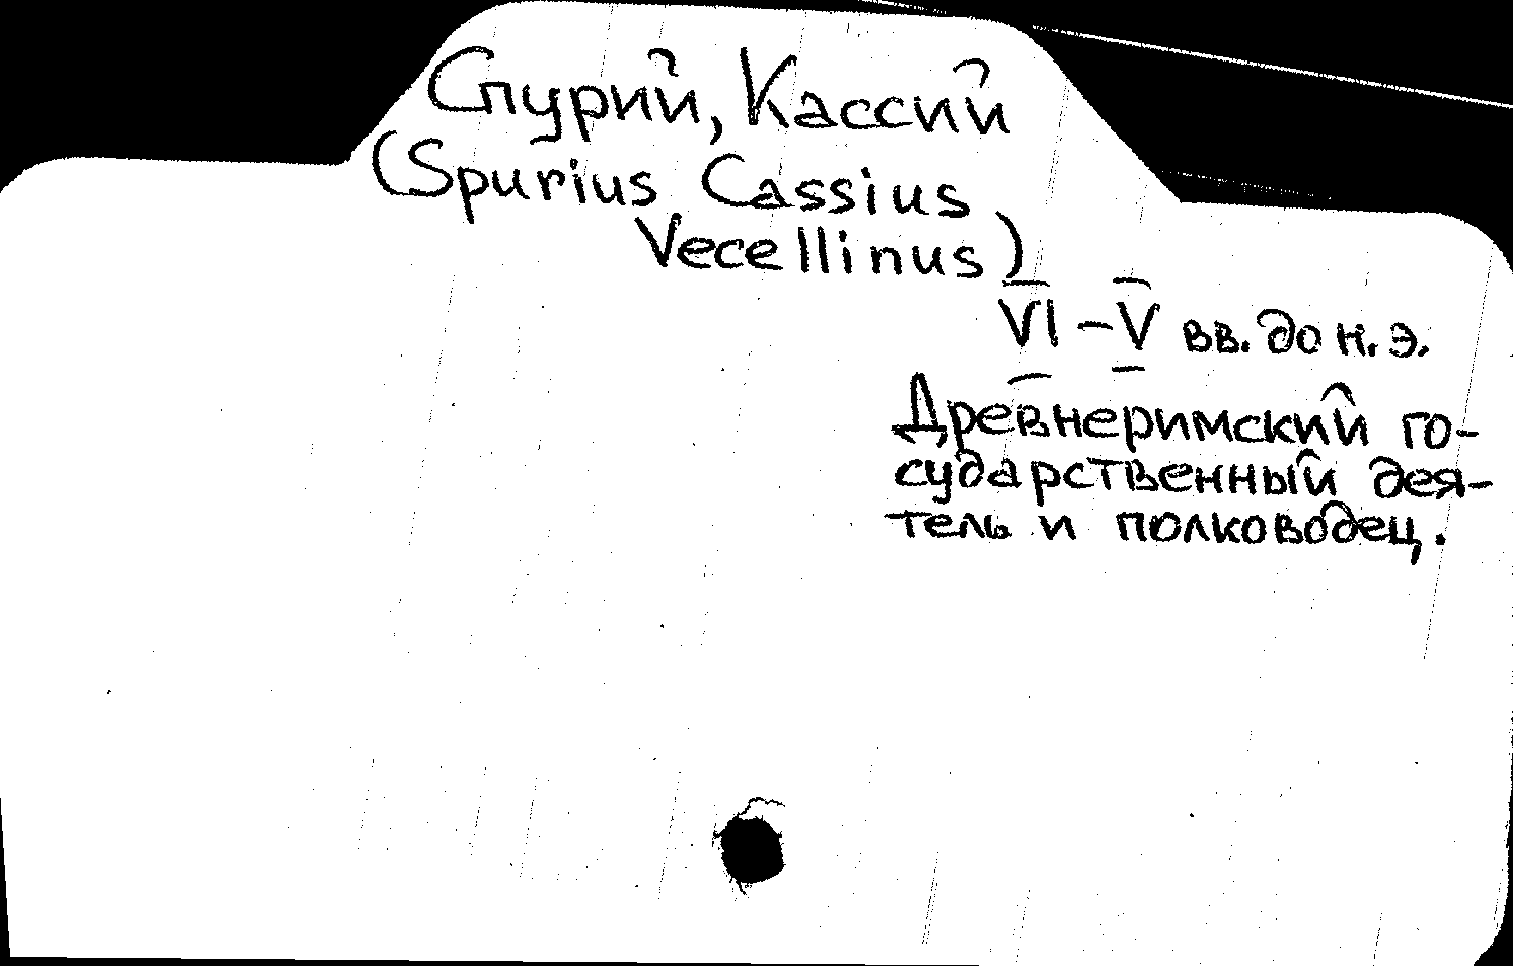 Спурий, Кассий
(Spurius Cassius
Vecellinus)
VI – V вв. до н. э.
Древнеримский го-
сударственный дея-
тель и полководец.